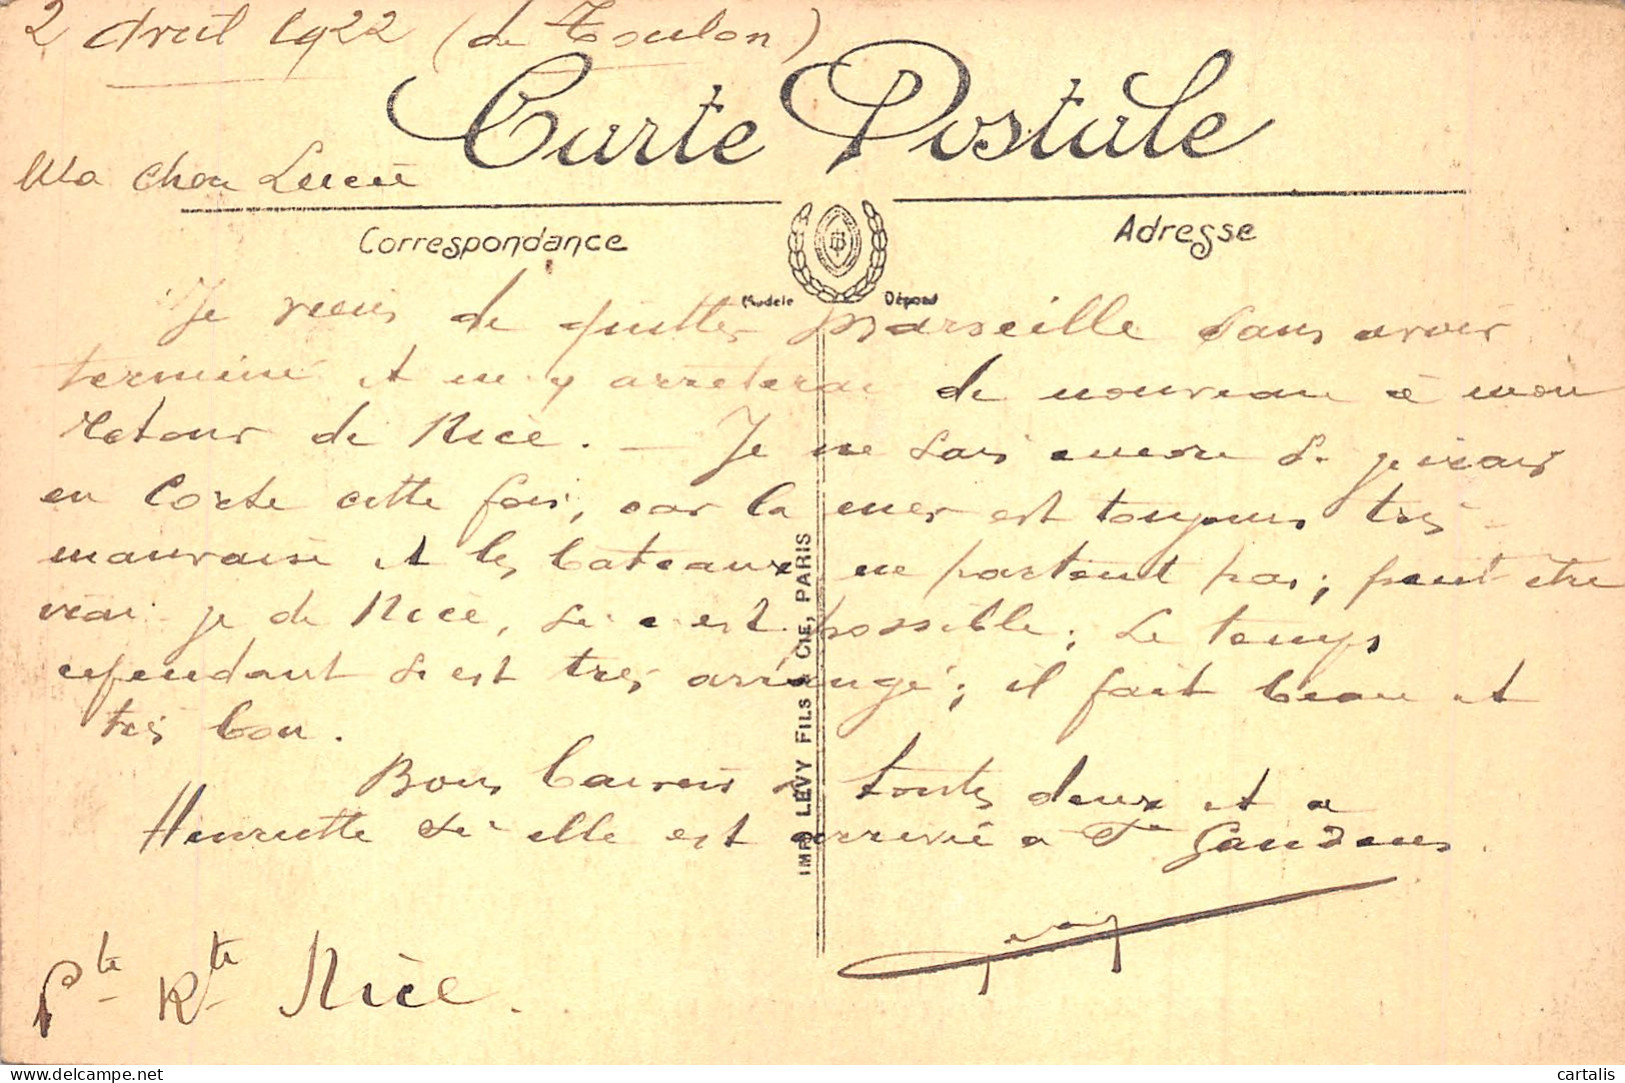 2 Avril 1922 (de Toulon)
Carte Postale
Ma chere Lucie
Correspondance
Adresse
Modèle Déposé
Je viens de quitter Marseille sans avoir
terminé et m'y arreterai de nouveau à mon
retour de Nice. — Je ne sais encore si j'irais
en Corse cette fois, car la mer est toujours très
mauvaise et les bateaux ne partent pas; peut être
irai-je de Nice, si c'est possible. Le temps
cependant s'est très arrangé; il fait beau et
très bon.
Bons baisers a toutes deux et a
Henriette si elle est arrivée a St Gaudens.
Pte Rte Nice.
IMP. LÉVY FILS & CIE, PARIS
delcampe.net
cartalis